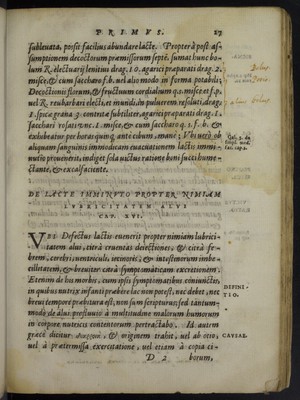 PRIMVS. 27
subleuata, possit facilius abundare lacte. Propterà post as-
sumptionem decoctorum præmissorum septē. sumat hunc bo-
lum R. electuarij lenitiui drag. 10. agarici præparati drag. 2.
misce, & cum saccharo f. b. uel alio modo in forma potabili;
Decoctionis florum, & fructuum cordialium q.s. misce et f. p.
uel R. reubarbari electi, et mundi, in puluerem resoluti, drag.
1. spicæ grana 3. contritæ subtiliter, agarici præparati drag. 1.
sacchari rosati unc. 1. misce, & cum saccharo q. s. f. b. &
exhibeatur per horas quinq. ante cibum, mane; Vbi uerò ob
aliquam sanguinis immodicam euacuationem lactis immi-
nutio prouenerit, indiget sola uictus ratione benè succi hume-
ctante, & excalfaciente.
Bolus.
Potio.
alius bolus.
DE LACTE IMMINVTO PROPTER NIMIAM
LVBRICITATEM ALVI
CAP. XVI.
VBI Defectus lactis euenerit propter nimiam lubrici-
tatem alui, citrà cruentas deiectiones, & citrà fe-
brem, cerebri, uentriculi, iecinoris, & intestinorum imbe-
cillitatem, & breuiter citrà symptomaticam excretionem.
Etenim de his morbis, cum ipsis symptomatibus coniunctis,
in quibus nutrix infanti præbere lac non potest, nec debet, nec
breui tempore præbitura est, non sum scripturus; sed tantum-
modo de alui profluuio à multitudine malorum humorum
in corpore nutricis contentorum pertractabo. Id autem
græcè dicitur διαῤῥοια, & originem trahit, uel ab otio,
uel à prætermissa exercitatione, uel etiam à copia ci-
DEFINI-
TIO.
CAVSAE.
D 2 borum,